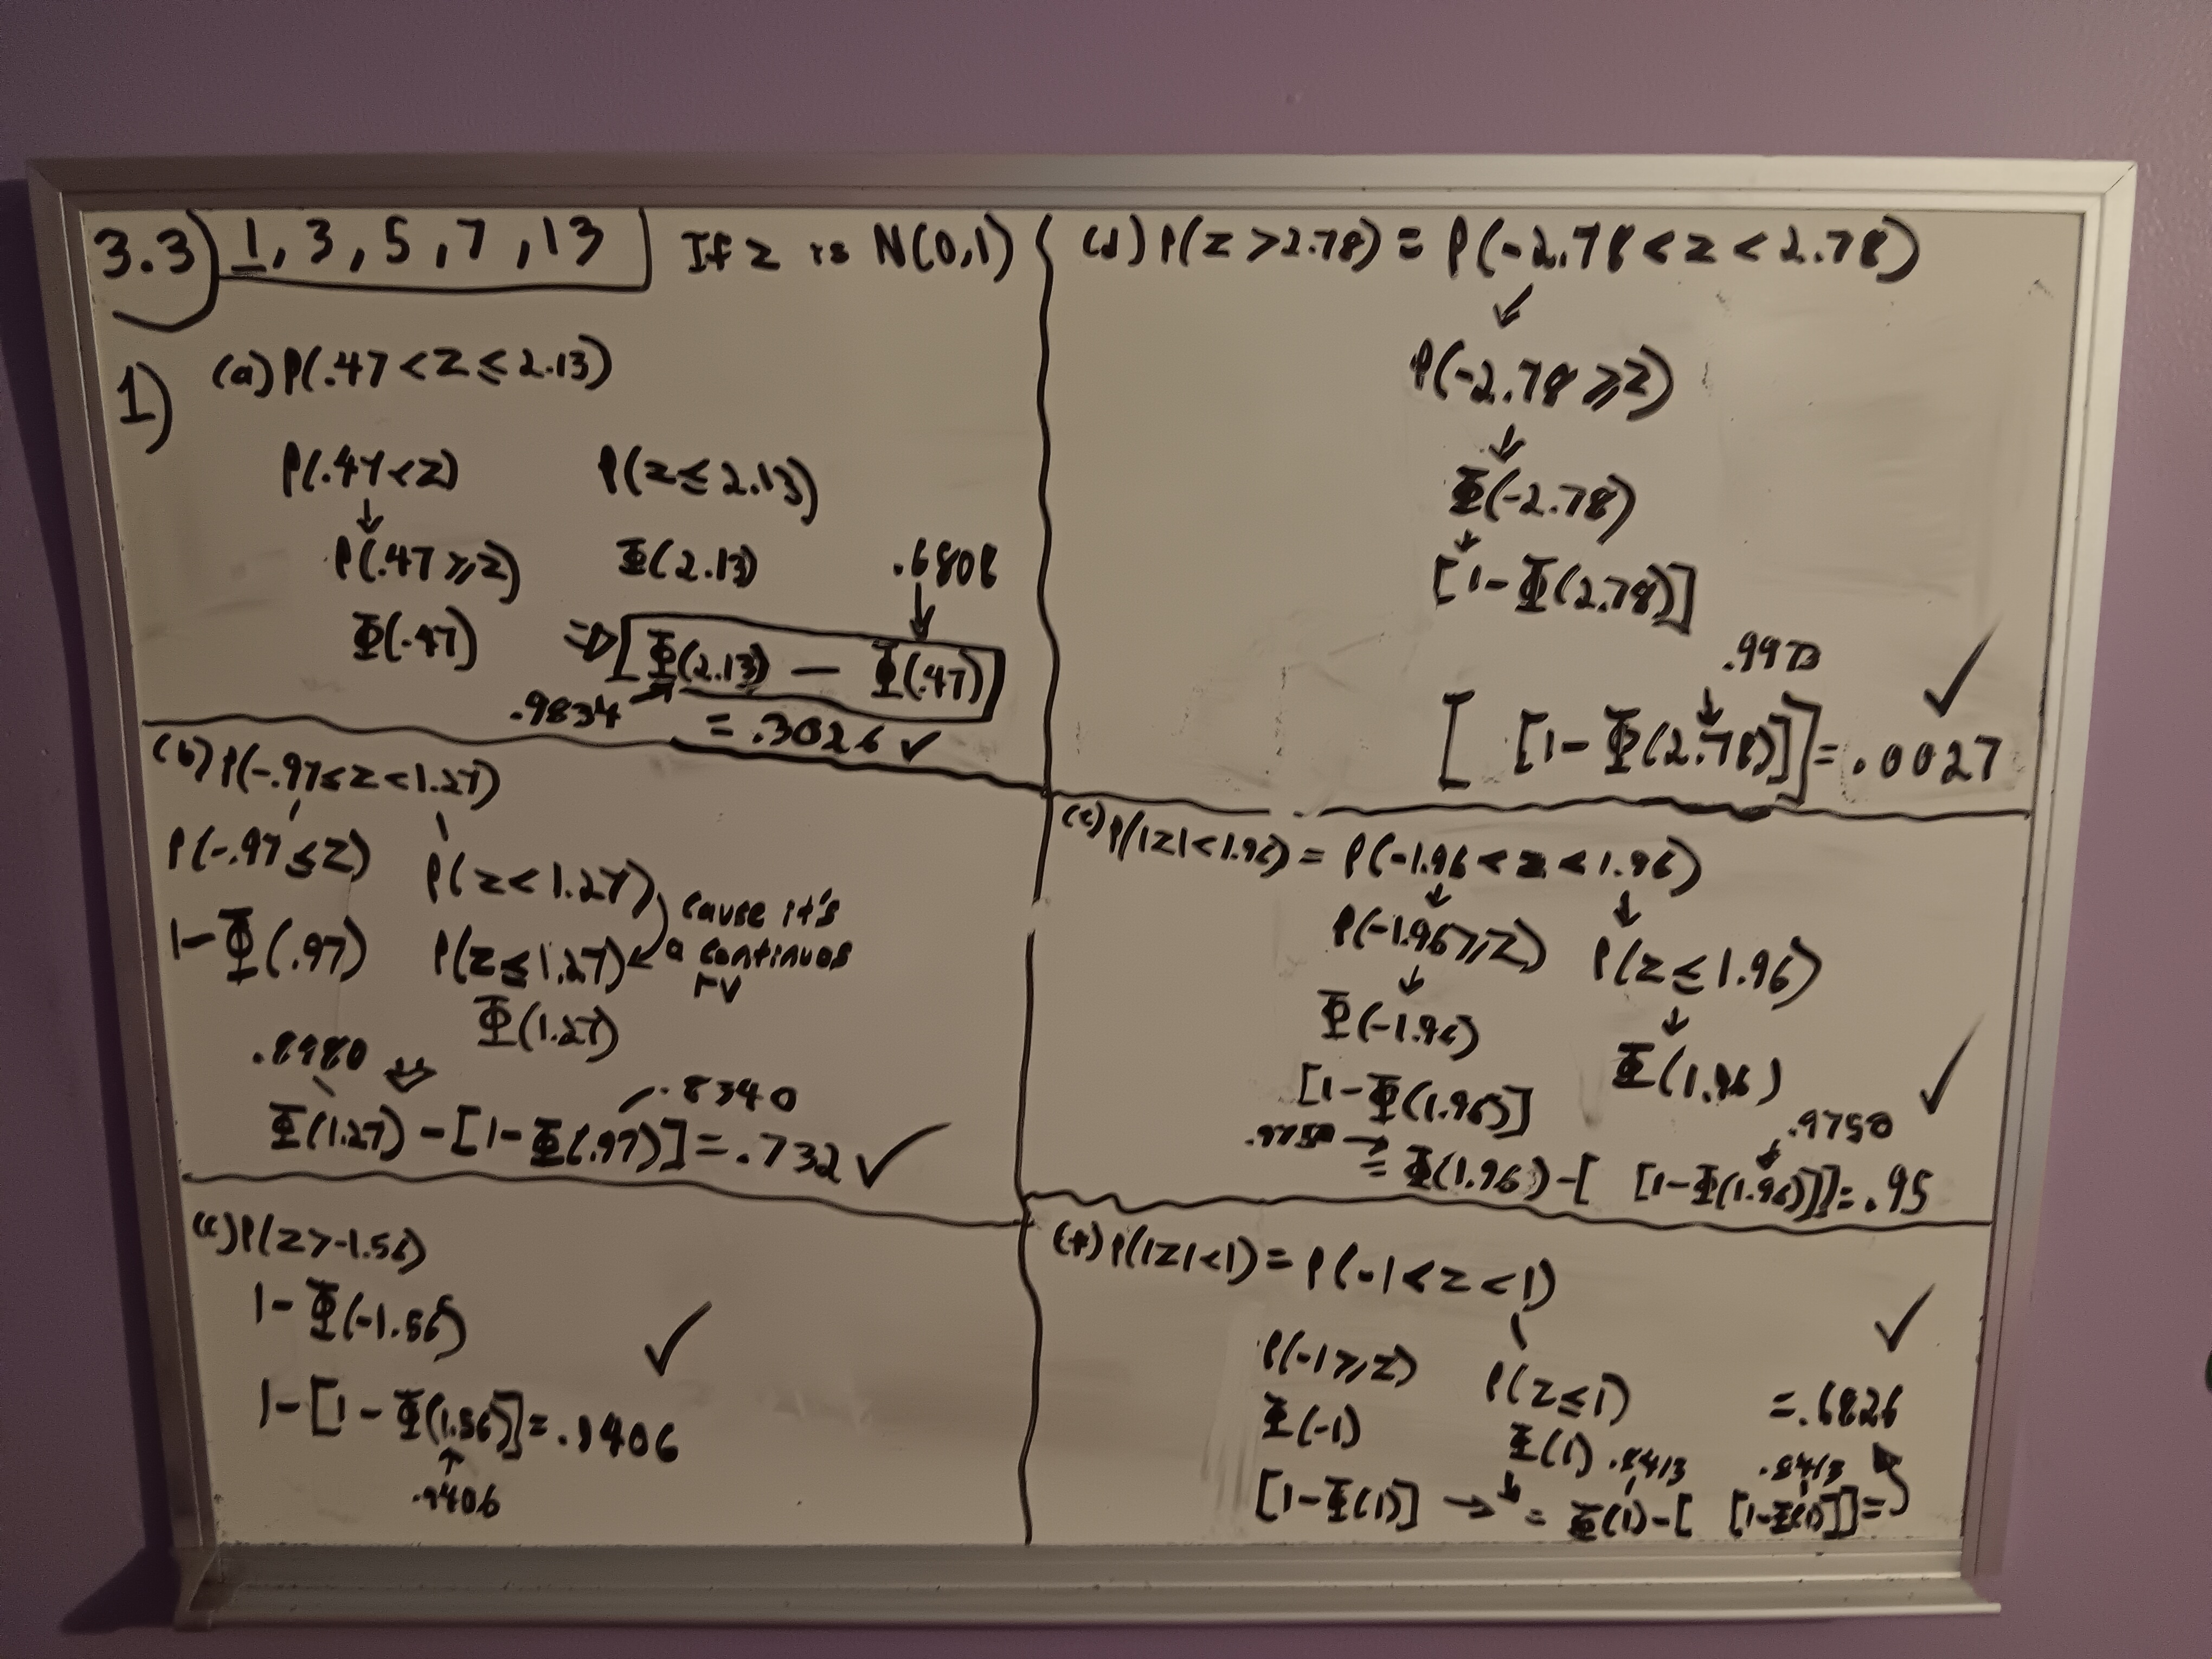 3.3) 1, 3, 5, 7, 13 If z is N(0,1)
1) (a) P(.47 < Z ≤ 2.13)
P(.47 < Z) P(z ≤ 2.13)
↓
P(.47 ≥ Z) Φ(2.13) .6808
Φ(.47) ⇒ [Φ(2.13) − Φ(.47)]
.9834
= .3026 ✓
(b) P(-.97 ≤ Z < 1.27)
P(-.97 ≤ Z) P(z < 1.27) cause it's
1-Φ(.97) P(Z ≤ 1.27) a continuos
rv
Φ(1.27)
.8980
.8340
Φ(1.27) - [1-Φ(.97)] = .732 ✓
(c) P(Z > -1.56)
1-Φ(-1.56)
1-[1-Φ(1.56)] = .9406 ✓
↑
.9406
(d) P(Z > 2.78) = P(-2.78 < z < 2.78)
↓
P(-2.78 ≥ Z)
↓
Φ(-2.78)
↓
[1-Φ(2.78)]
.9973
[ [1-Φ(2.78)]] = .0027 ✓
(e) P(|Z| < 1.96) = P(-1.96 < z < 1.96)
↓ ↓
P(-1.96 ≥ Z) P(Z ≤ 1.96)
↓ ↓
Φ(-1.96) Φ(1.96) ✓
[1-Φ(1.96)]
.9750 → .9750
= Φ(1.96) - [ [1-Φ(1.96)]] = .95
(f) P(|Z| < 1) = P(-1 < Z < 1)
P(-1 ≥ Z) P(Z ≤ 1) = .6826 ✓
Φ(-1) Φ(1) .8413 .8413
[1-Φ(1)] → = Φ(1) - [ [1-Φ(1)]] =